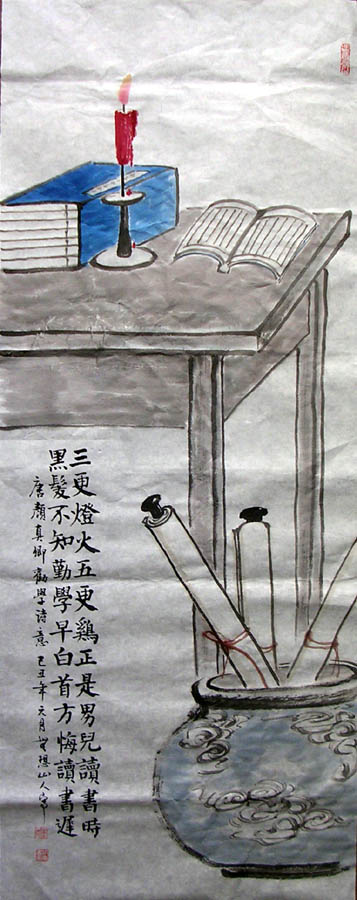 三更燈火五更鷄正是男兒讀書時
黑髮不知勤學早白首方悔讀書遲
唐顏真卿勸學詩意己丑年元月山人